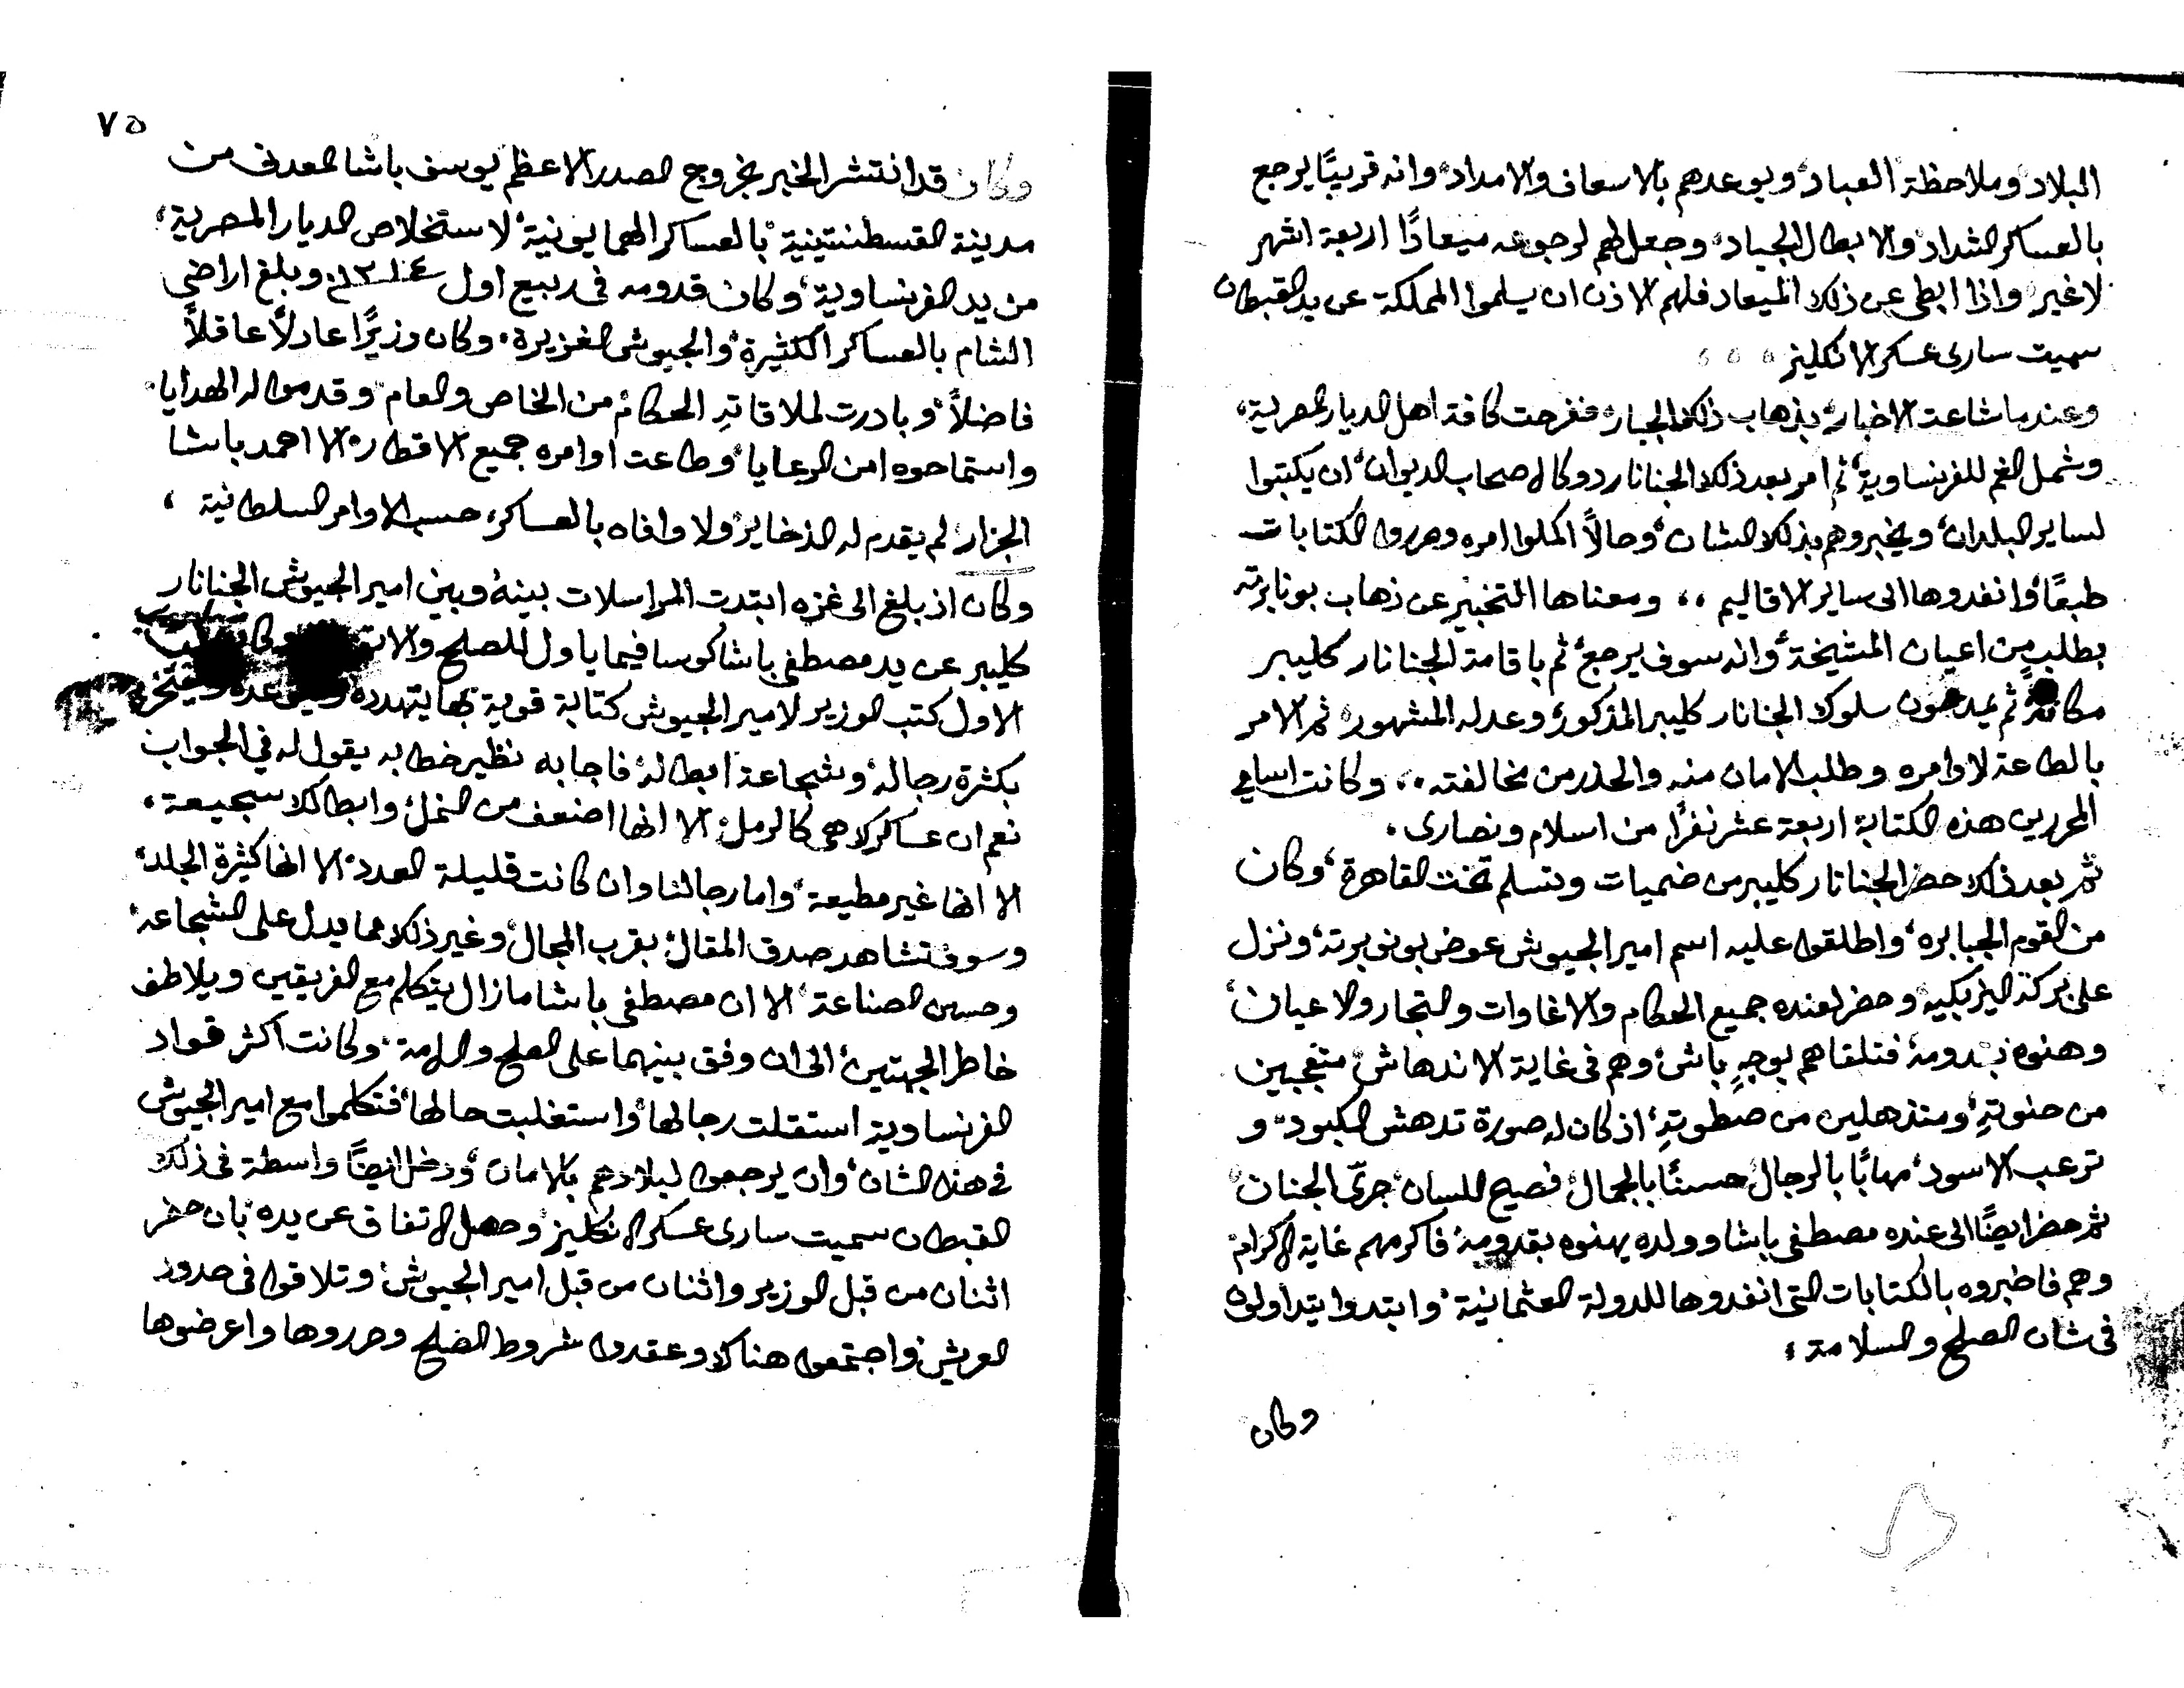 البلاد وملاحظة العباد، ويوعدهم بالاسعاف والامداد، وانه قريبًا يرجع
بالعساكر الشداد، والابطال الجياد، وجعل لهم لرجوعه ميعادًا اربعة اشهر
لاغير، واذا ابطى عن ذلك الميعاد فلهم الاذن ان يسلموا المملكة عن يد القبطان
سميت سارى عسكر الانكليز
وعندما شاعت الاخبار، بذهاب ذلك الجبار، ففرحت كافة اهل الديار المصرية،
وشمل الغم للفرنساوية، ثم امر بعد ذلك الجنانار دوكا لاصحاب الديوان، ان يكتبوا
لساير البلدان، ويخبروهم بذلك الشان، وحالاً اكملوا امره وحرروا الكتابات
طبعًا، وانفدوها الى ساير الاقاليم،، ومعناها التخبير عن ذهاب بونابرته
بطلبٍ من اعيان المشيخة، وانه سوف يرجع، ثم باقامة الجنانار كليبر
مكانه، ثم يمدحون سلوك الجنانار كليبر المذكور، وعدله المشهور، ثم الامر
بالطاعة لاوامره وطلب الامان منه والحذر من مخالفته،، وكانت اسامي
المحررين هذه الكتابة اربعة عشر نفرًا من اسلام ونصارى،
ثم بعد ذلك حضر الجنانار كليبر من ضميات وتسلم تخت القاهرة، وكان
من القوم الجبابره، واطلقوا عليه اسم امير الجيوش عوض بونوبرته، ونزل
على بركة اليزبكيه، وحضر لعنده جميع الحكام والاغاوات والتجار والاعيان،
وهنوه بقدومه، فتلقاهم بوجهٍ باش، وهم فى غاية الاندهاش، متعجبين
من حنوتهِ، ومنذهلين من صطوتهِ، اذ كان له صورة تدهش الكبود، و
ترعب الاسود، مهابًا بالرجال، حسنًا بالجمال، فصيح اللسان، جرىّ الجنان،
ثم حضر ايضًا الى عنده مصطفى باشا وولده يهنوه بقدومه، فاكرمهم غاية الاكرام،
وهم فاخبروه بالكتابات التى انفدوها للدولة العثمانية، وابتدوا يتداولون
فى شان الصلح والسلامة،
وكان
٧٥
وكان قد انتشر الخبر بخروج الصدر الاعظم يوسف باشا المعدنى من
مدينة القسطنتينية، بالعساكر الهمايونية، لاستخلاص الديار المصرية،
من يد الفرنساوية، وكان قدومه فى ربيع اول ١٢١٤ وبلغ اراضي
الشام بالعساكر الكثيرة، والجيوش الغزيرة، وكان وزيرًا عادلاً عاقلاً
فاضلاً، وبادرت لملاقاتهِ الحكام، من الخاص والعام، وقدموا له الهدايا،
واستماحوه امن الرعايا، وطاعت اوامره جميع الاقطار، الا احمد باشا
الجزار، لم يقدم له الذخاير، ولا وافاه بالعساكر، حسب الاوامر السلطانية،
وكان اذ بلغ الى غزه ابتدت المراسلات بينهُ وبين امير الجيوش الجنانار
كليبر عن يد مصطفى باشا كوسا فيما ياول للصلح
الاول كتب الوزير لامير الجيوش كتابة قوية بها يتهدده ويفتخر
بكثرة رجاله، وشجاعة ابطاله، فاجابه نظير خطابه يقول له في الجواب
نعم ان عساكرك هى كالرمل، الا انها اضعف من النمل، وابطالك سجيعة،
الا انها غير مطيعة، واما رجالنا وان كانت قليلة العدد، الا انها كثيرة الجلد،
وسوف تشاهد صدق المقال، بقرب المجال، وغير ذلك مما يدل على الشجاعه،
وحسن الصناعة، الا ان مصطفى باشا مازال يتكلم مع الفريقين ويلاطف
خاطر الجهتين، الى ان وفق بينهما على الصلح والسلامة، وكانت اكثر قواد
الفرنساوية استقلت رجالها، واستغلبت حالها، فتكلموا مع امير الجيوش
فى هذا الشان، وان يرجعوا لبلادهم بالامان، ودخل ايضًا واسطة فى ذلك
القبطان سميت سارى عسكر الانكليز، وحصل الاتفاق عن يده، بان حضر
اثنان من قبل الوزير واثنان من قبل امير الجيوش، وتلاقوا فى حدود
العريش، واجتمعوا هناك وعقدوا شروط الصلح وحرروها واعرضوها